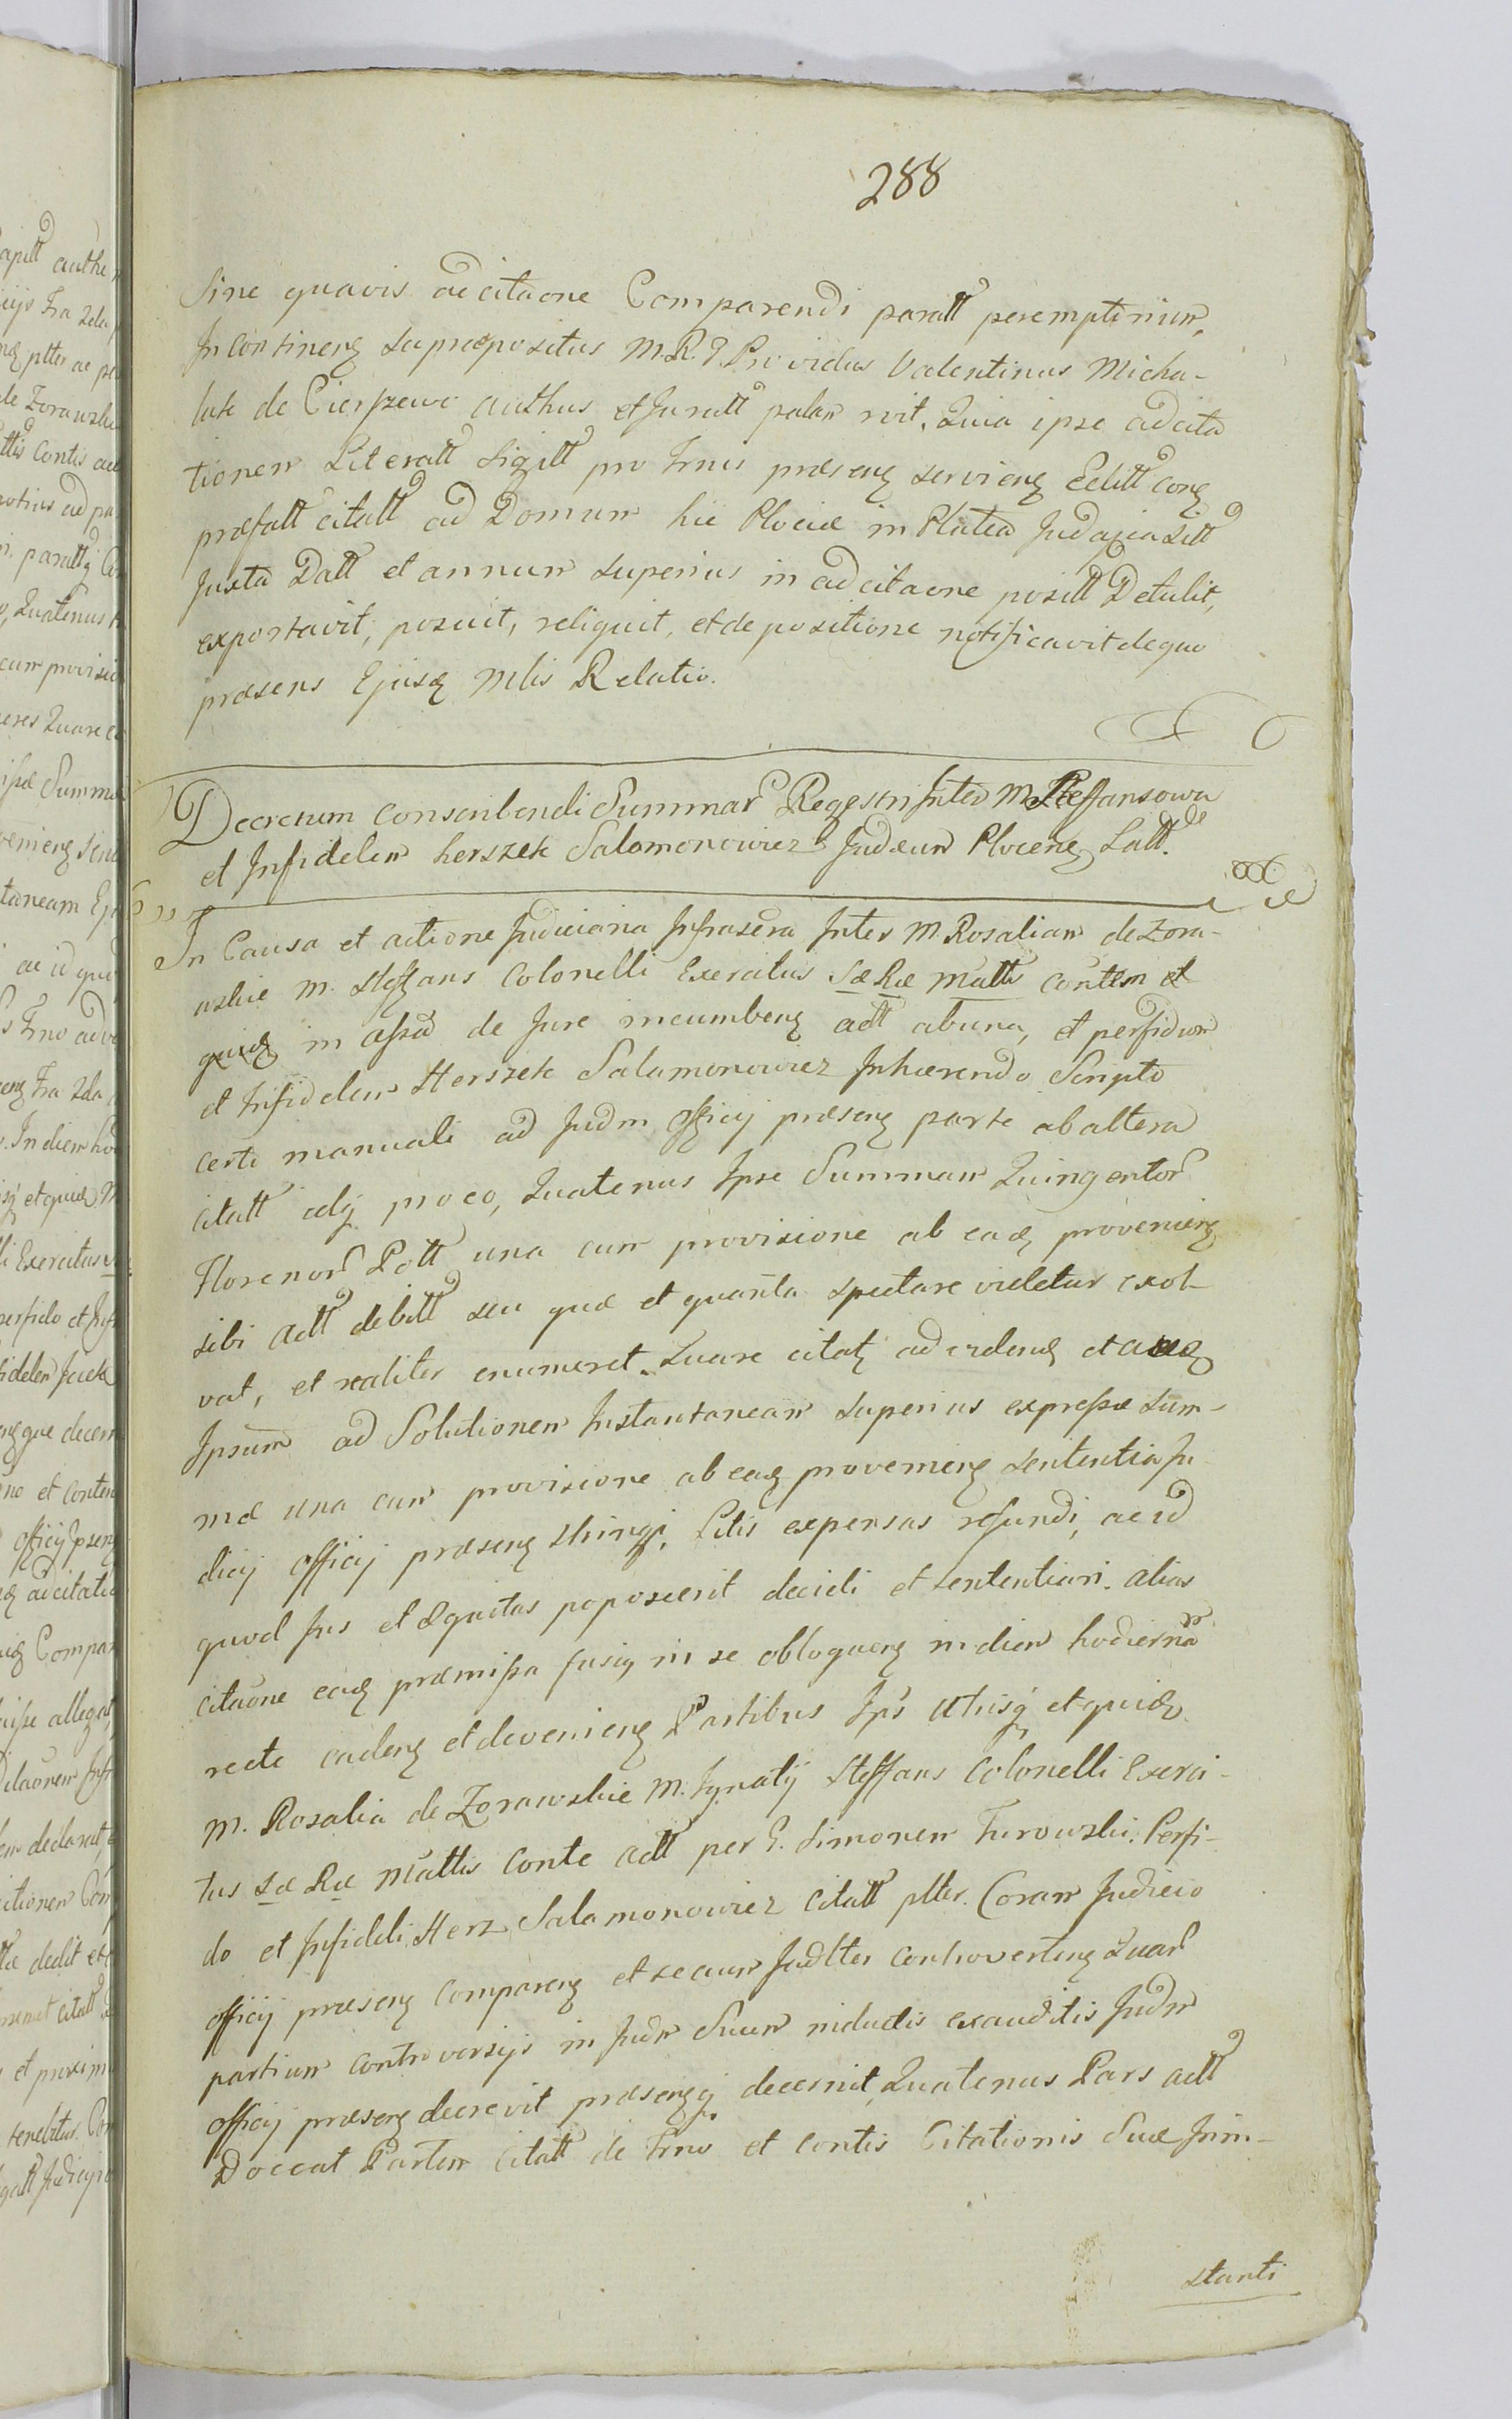 288
Sine quavis adcitaone Comparendi paratt peremptorium,
Incontineng supræpositus M.R.G. Providus Valentinus Micha-
lak de Cierszewo authus et Juratt palam rvit. Quia ipse adcita
tionem Literatt Sigitt pro Trnis præseng servieng Editt cong
præfatt citatt ad Domum hic Plociæ in Platea Judajca Sitt
Juxta Datt et annum superius in adcitaone positt Detulit,
exportavit, posuit, reliquit, et de positione notificavit de quo
præsens Ejusq Mlis Relatio.
Decretum conscribendi Summar Regestri Inter M. Steffansowa
et Infidelem herszek Salomonowicz Judæum Ploceng Latt.
In Causa et actione Judiciaria Infrascra Inter M. Rosaliam de Zora-
wskie M. Steffans Colonelli Exercitus Sæ Ræ Mattis contem et
quidq in assa de Jure incumbeng actt ab una, et perfidum
et Infidelem Herszek Salamonowicz Inhærendo Scripto
certo manuali ad Judm Officij præseng parte ab altera
citatt idq pro eo, Quatenus Ipse Summam Quingentor
Florenor Pott una cum provisione ab eadq provenieng
sibi actt debitt seu quæ et quanta spectare videtur exol-
vat, et realiter enumeret. Quare citatq ad videndq et audq
Ipsum ad Solutionem Instantaneam superius expressæ Sum-
mæ una cum provisione ab eadq provenieng sententia Ju
dicij officij præseng stringi, Litis expensas refundi, ac id
quod Jus et æquitas poposcerit decidi et sententiari. alias
citaone eadq præmissa fusiq in se obloqueng in diem hodierna
recte cadeng et devenieng Partibus Ips utrisq et quidq
M. Rosalia de Zorawskie M. Ignatij Steffans Colonelli Exerci-
tus Sæ Ræ Mattis conte actt per G. Simonem Turowski. Perfi-
do et Infideli Herz Salamonowicz citatt plter. Coram Judicio
officij præseng compareng et secum Judlter controverteng quar
partium controversijs in Judm Suum inductis exauditis Judm
officij præseng decrevit præsengq decernit, Quatenus Pars actt
Doceat Partem Citatt de Trno et contis Citationis Suæ Juin-
stanti